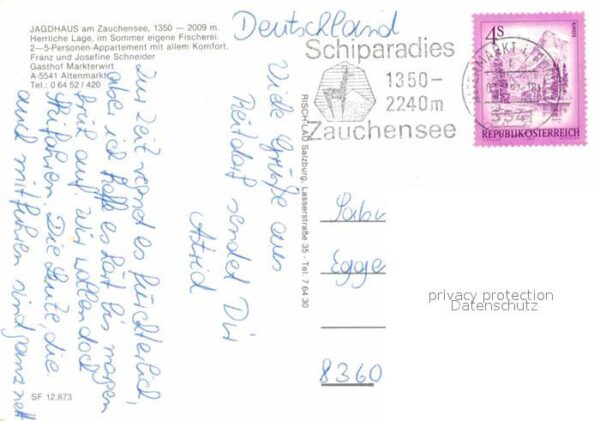 JAGDHAUS am Zauchensee, 1350 — 2009 m.
Herrliche Lage, im Sommer eigene Fischerei.
2—5-Personen-Appartement mit allem Komfort.
Franz und Josefine Schneider
Gasthof Markterwirt
A-5541 Altenmarkt
Tel.: 0 64 52 / 420
Deutschland
Schiparadies
1350—
2240 m
Zauchensee
4S
REPUBLIK ÖSTERREICH
Viele Grüße aus
Reitdorf sendet Dir
Astrid
Zur Zeit regnet es fürchterlich,
aber ich hoffe es hört bis morgen
früh auf. Wir wollen doch
Skifahren. Die Leute, die
auch mitfuhren sind ganz nett
RISCH-LAU Salzburg, Lasserstraße 35 - Tel. 7 64 30
Sabi
Egge
8360
privacy protection
Datenschutz
SF 12.873